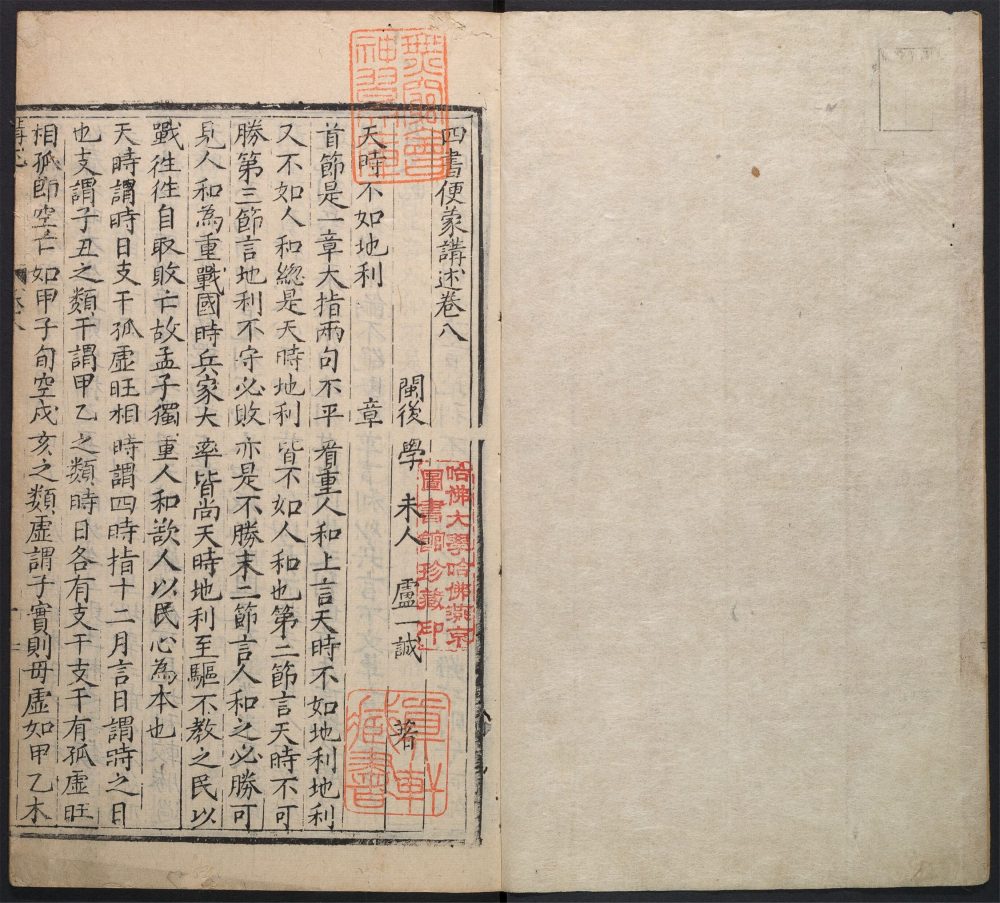 四書便蒙講述卷八
閩後學 未人 盧一誠 著
天時不如地利 章
首節是一章大指兩句不平看重人和上言天時不如地利地利
又不如人和總是天時地利皆不如人和也第二節言天時不可
勝第三節言地利不守必敗亦是不勝末二節言人和之必勝可
見人和為重戰國時兵家大率皆尚天時地利至驅不教之民以
戰徃徃自取敗亡故孟子獨重人和欲人以民心為本也
天時謂時日支干孤虛旺相時謂四時指十二月言日謂時之日
也支謂子丑之類干謂甲乙之類時日各有支干支干有孤虛旺
相孤即空亡如甲子旬空戌亥之類虛謂子實則毋虛如甲乙木
哈佛大學哈佛燕京
圖書館珍藏印